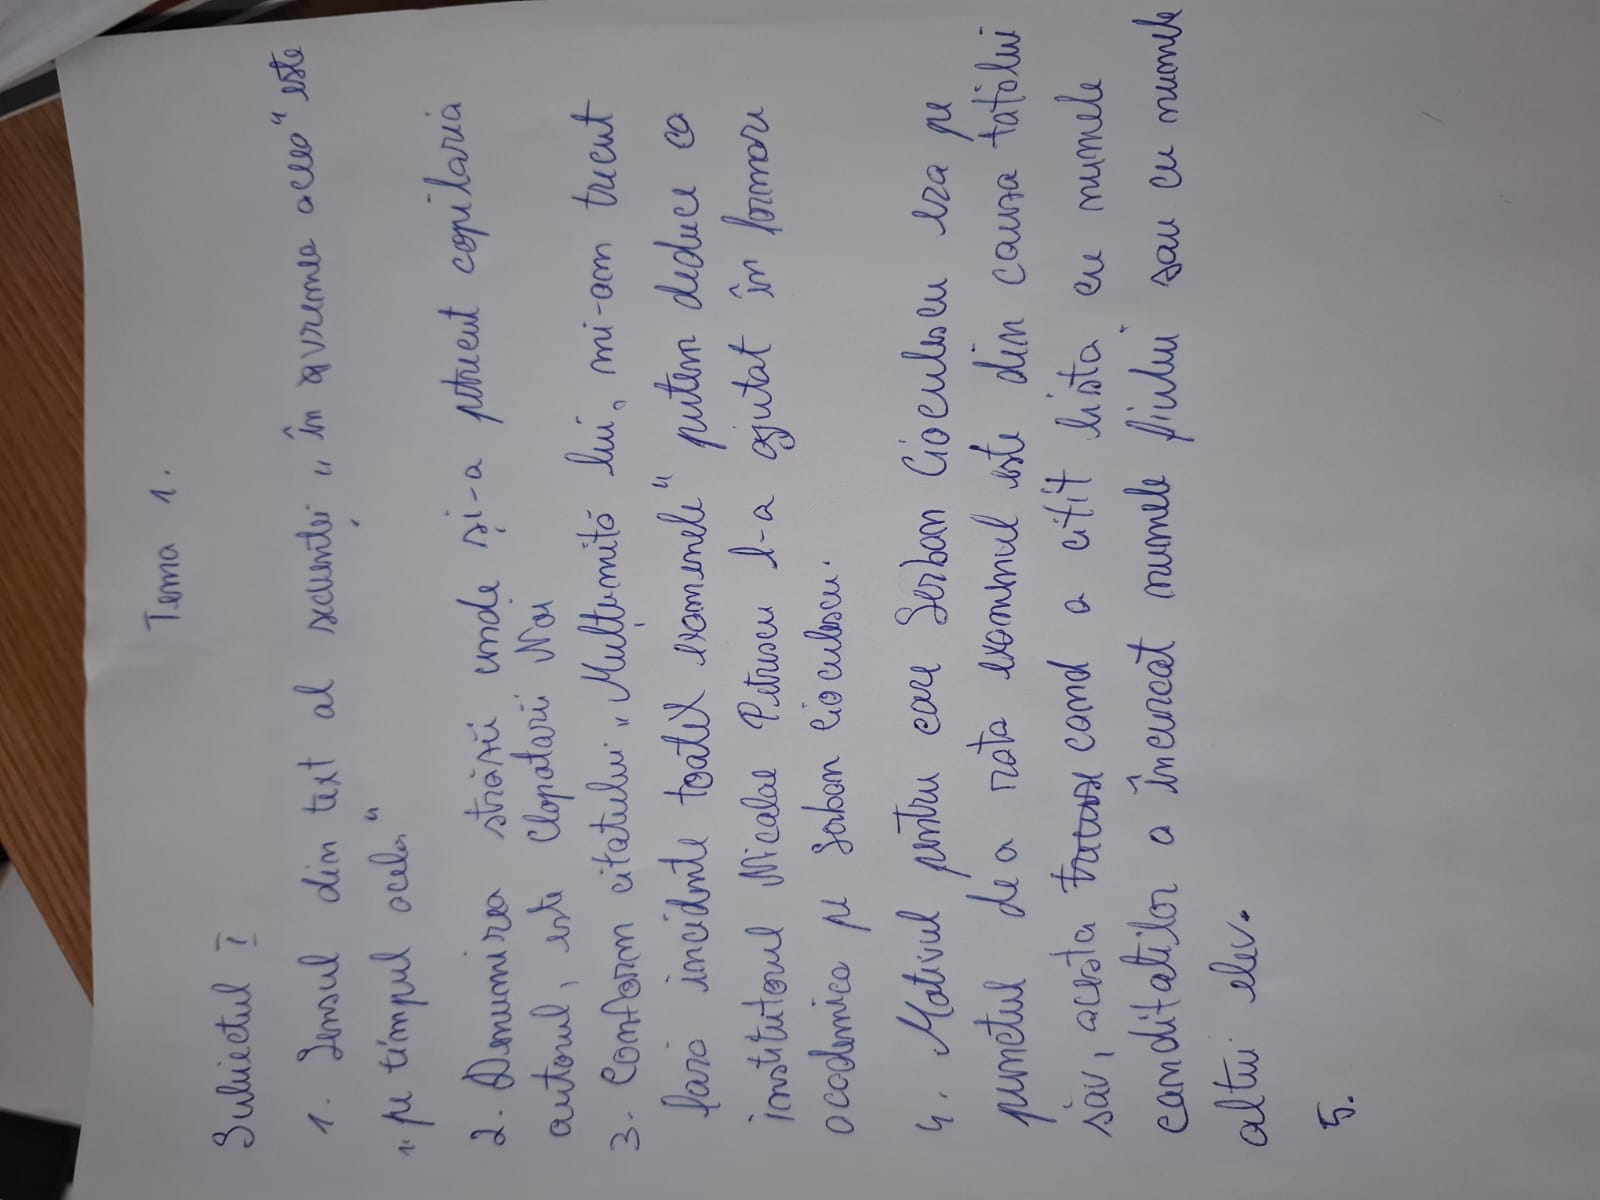 Tema 1.
Subiectul I
1. Sensul din text al secvenței „în vremea aceea" este
„pe timpul acela"
2. Denumirea străzii unde și-a petrecut copilaria
autorul, este Clopotarii Noi
3. Conform citatului „Mulțumită lui, mi-am trecut
fară incidente toate examenele" putem deduce ca
institutorul Nicolae Petrescu l-a ajutat în formare
academica pe Serban Cioculescu.
4. Motivul pentru care Serban Cioculescu era pe
punctul de a rata examenul este din cauza tatălui
său, acesta cand a citit lista cu numele
canditatilor a încurcat numele fiului sau cu numele
altui elev.
5.